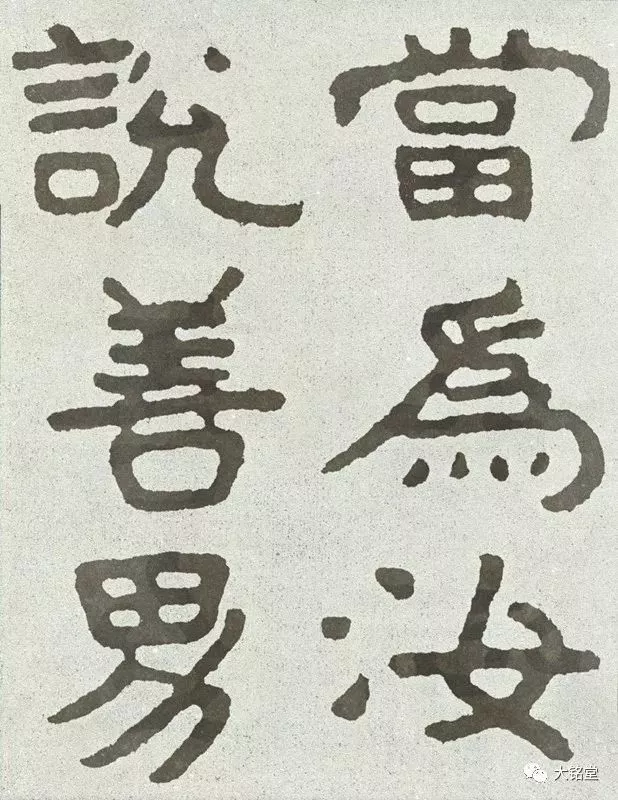 當為汝
說善男
大铭堂